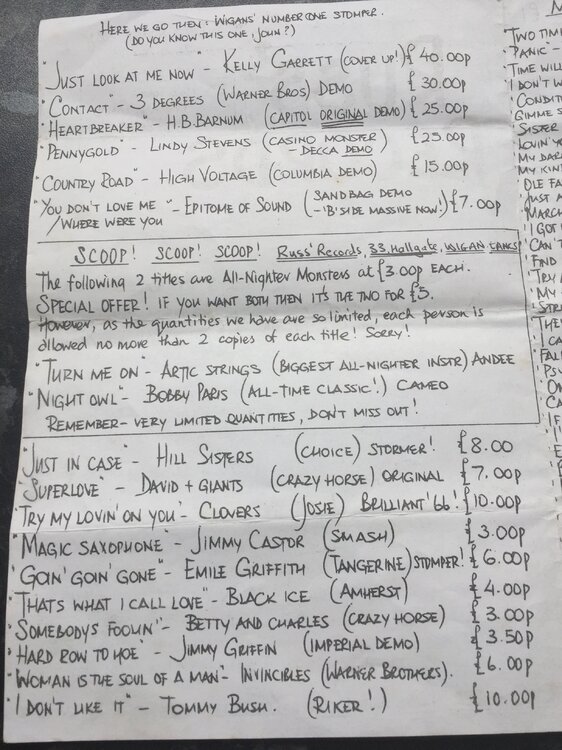 HERE WE GO THEN: WIGANS' NUMBER ONE STOMPER.
(DO YOU KNOW THIS ONE, JOHN?)
"JUST LOOK AT ME NOW" - KELLY GARRETT (COVER UP!) £40.00p
"CONTACT" - 3 DEGREES (WARNER BROS) DEMO £30.00p
"HEARTBREAKER" - H.B. BARNUM (CAPITOL ORIGINAL DEMO) £25.00p
"PENNYGOLD" - LINDY STEVENS (CASINO MONSTER - DECCA DEMO) £25.00p
"COUNTRY ROAD" - HIGH VOLTAGE (COLUMBIA DEMO) £15.00p
"YOU DON'T LOVE ME" - EPITOME OF SOUND (SANDBAG DEMO £7.00p
/WHERE WERE YOU - 'B' SIDE MASSIVE NOW!)
SCOOP! SCOOP! SCOOP! Russ' Records, 33, Hallgate, WIGAN LANCS
The following 2 titles are All-Nighter Monsters at £3.00p EACH.
SPECIAL OFFER! IF YOU WANT BOTH THEN IT'S THE TWO FOR £5.
However, as the quantities we have are so limited, each person is
allowed no more than 2 copies of each title! Sorry!
"TURN ME ON" - ARTIC STRINGS (BIGGEST ALL-NIGHTER INSTR) ANDEE
"NIGHT OWL" - BOBBY PARIS (ALL-TIME CLASSIC!) CAMEO
REMEMBER - VERY LIMITED QUANTITIES, DON'T MISS OUT!
"JUST IN CASE" - HILL SISTERS (CHOICE) STORMER! £8.00
"SUPERLOVE" - DAVID + GIANTS (CRAZY HORSE) ORIGINAL £7.00p
"TRY MY LOVIN' ON YOU" - CLOVERS (JOSIE) BRILLIANT '66! £10.00p
"MAGIC SAXOPHONE" - JIMMY CASTOR (SMASH) £3.00p
"GOIN' GOIN' GONE" - EMILE GRIFFITH (TANGERINE) STOMPER! £6.00p
"THATS WHAT I CALL LOVE" - BLACK ICE (AMHERST) £4.00p
"SOMEBODYS FOOLIN'" - BETTY AND CHARLES (CRAZY HORSE) £3.00p
"HARD ROW TO HOE" - JIMMY GRIFFIN (IMPERIAL DEMO) £3.50p
"WOMAN IS THE SOUL OF A MAN" - INVINCIBLES (WARNER BROTHERS). £6.00p
"I DON'T LIKE IT" - TOMMY BUSH. (RIKER!) £10.00p
"TWO TIM
"PANIC" -
"TIME WILL
"I DON'T W
"CONDIT
"GIMME S
"SISTER
"LOVIN' Y
"MY DAR
"MY KIN
"OLE FA
"JUST A
"MARCH
"I GOT
"CAN'T
"FIND
"TRY
"MY
"STR
"THE
"I CA
"FAL
"PS
"ON
"CA
"IF
"I